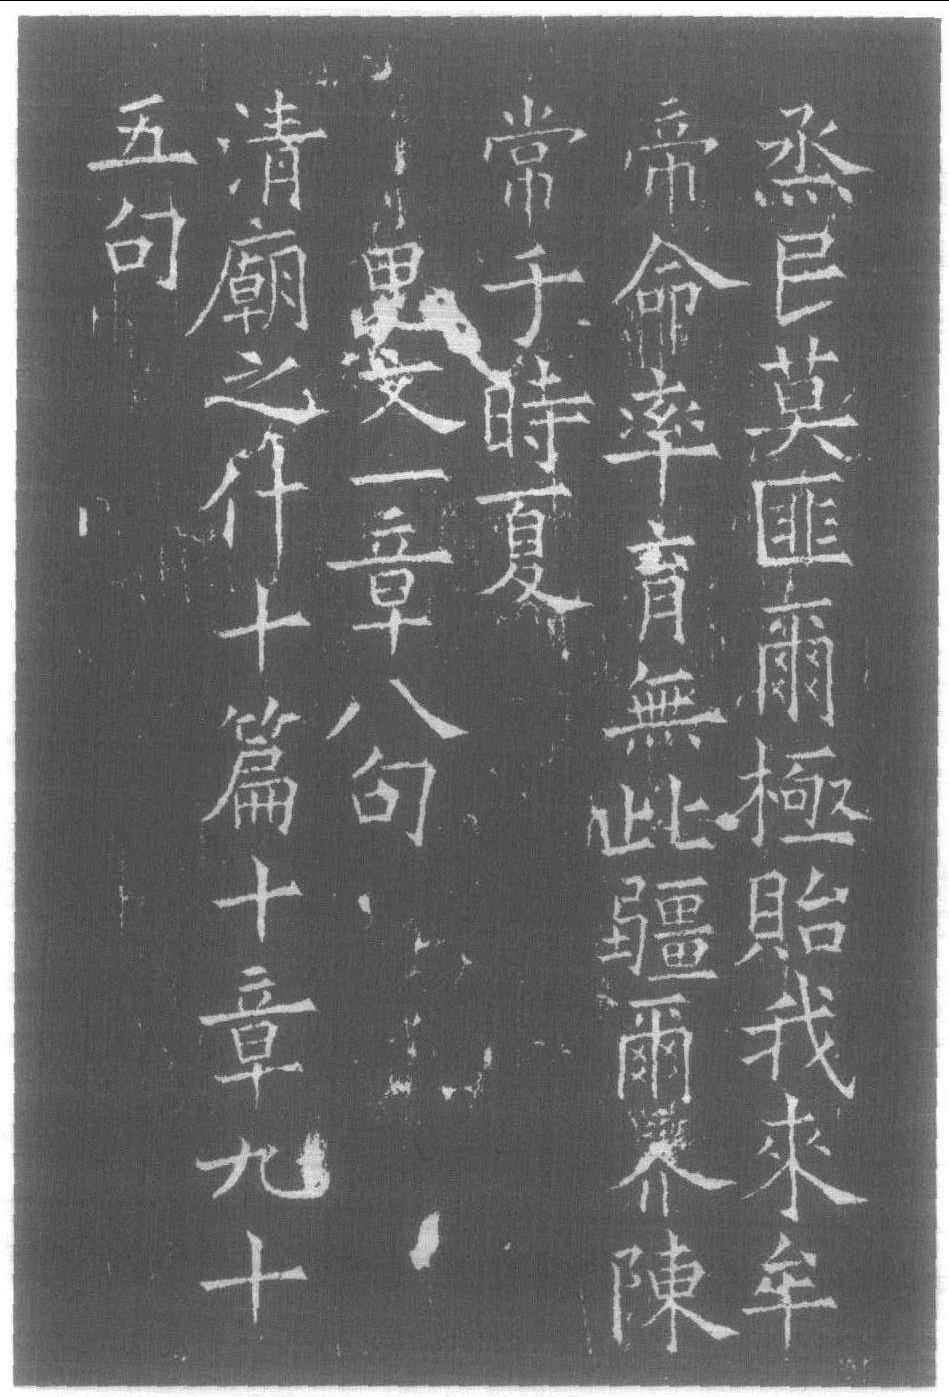 烝民莫匪爾極貽我來牟
帝命率育無此疆爾界陳
常于時夏
思文一章八句
清廟之什十篇十章九十
五句